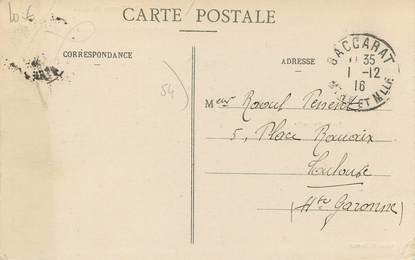 10 €
CARTE POSTALE
CORRESPONDANCE
ADRESSE
BACCARAT
11 35
1 -12
16
ET MLLE
54
Meur Raoul
5, Place Rouaix
Toulouse
(Hte Garonne)